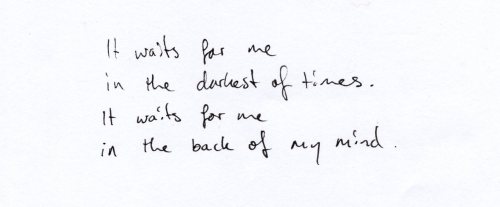 It waits for me
in the darkest of times.
It waits for me
in the back of my mind.